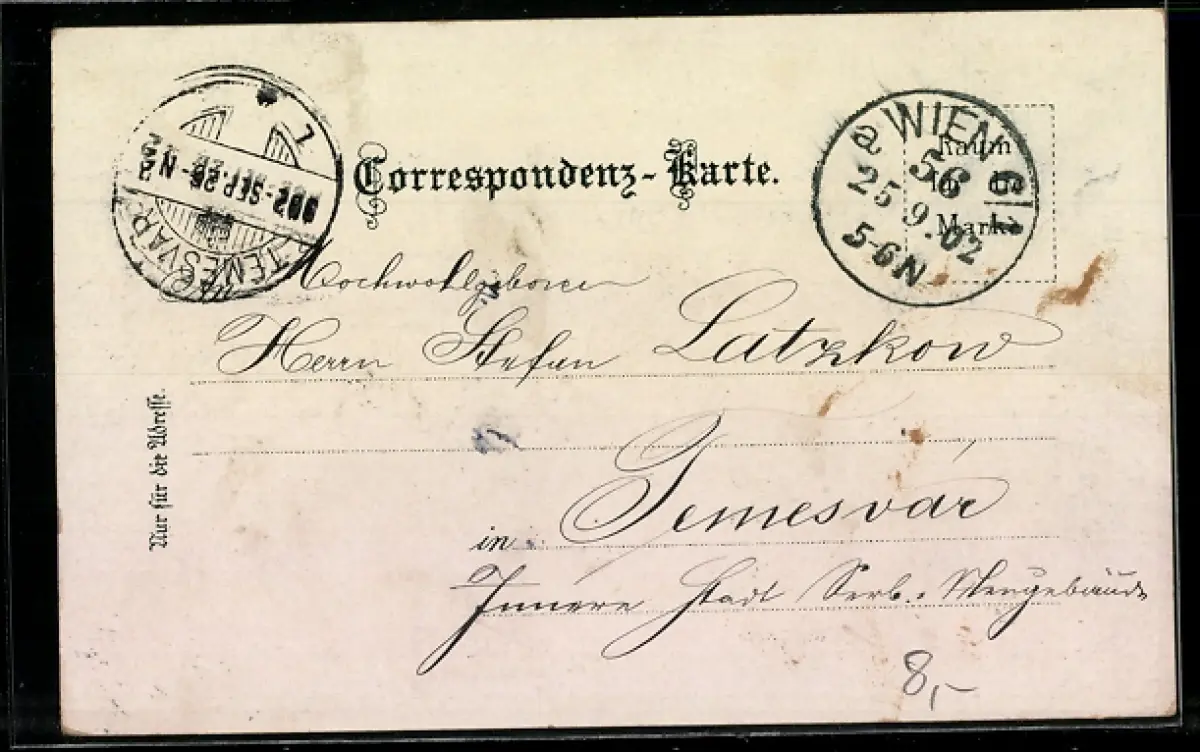 Correspondenz-Karte.
WIEN 6/1
56
25 9.02
5-6N
Raum
für die
Marke
TEMESVÁR
902-SEP.26-N 2
1
Hochwohlgeboren
Herrn Stefan Latzkow
Nur für die Adresse.
in Temesvár
Innere Stadt Serb.
8,-